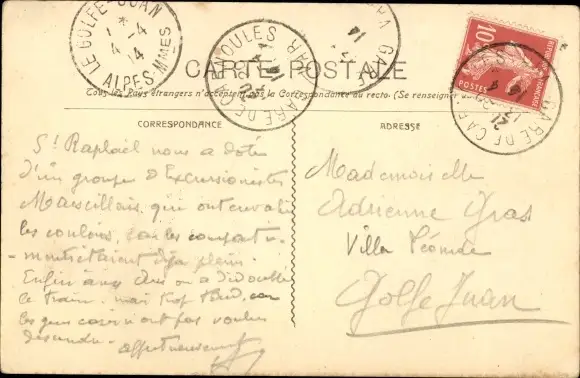 LE GOLFE-JUAN
4 -4
14
ALPES MMES
CARTE POSTALE
Tous les Pays étrangers n'acceptent pas la Correspondance au recto. (Se renseigner
CORRESPONDANCE
ADRESSE
10
POSTES
St Raphaël nous a dotés
d'un groupe d'Excursionnistes
Marseillais, qui ont envahi
les couloirs, car les compartim-
-ments étaient déjà pleins.
Enfin à on a dédoublé
le train. mais trop tard, car
les gens n'ont pas voulu
descendre. affectueusement
Mademoiselle
Adrienne Gras
Villa
Golfe Juan